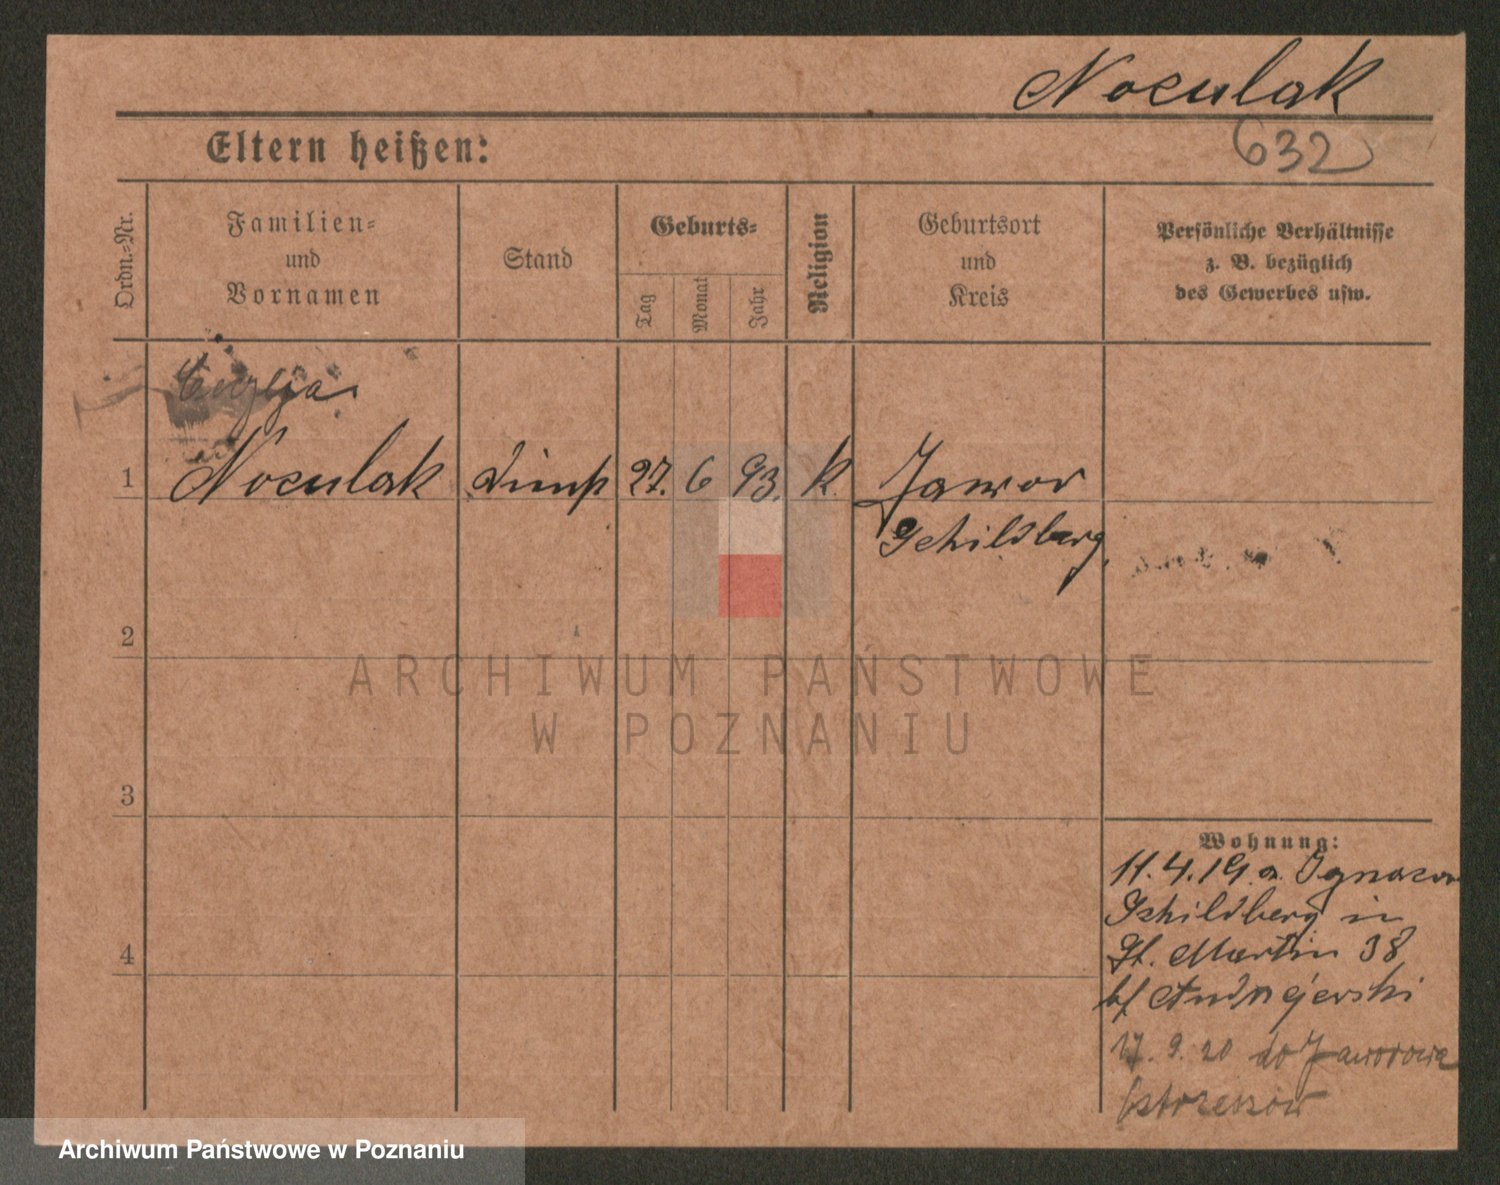 Noculak
Eltern heißen:
632
Ordn.-Nr.
Familien-
und
Vornamen
Stand
Geburts-
Tag
Monat
Jahr
Religion
Geburtsort
und
Kreis
Persönliche Verhältnisse
z. B. bezüglich
des Gewerbes usw.
1
Noculak
27. 6 93.
k.
Jawor
Schildberg
2
ARCHIWUM PAŃSTWOWE
W POZNANIU
3
Wohnung:
11.4.19. a.
Schildberg in
St. Martin 38
4
bf Andrzejewski
17. 9. 20 do Jaworowa
Archiwum Państwowe w Poznaniu